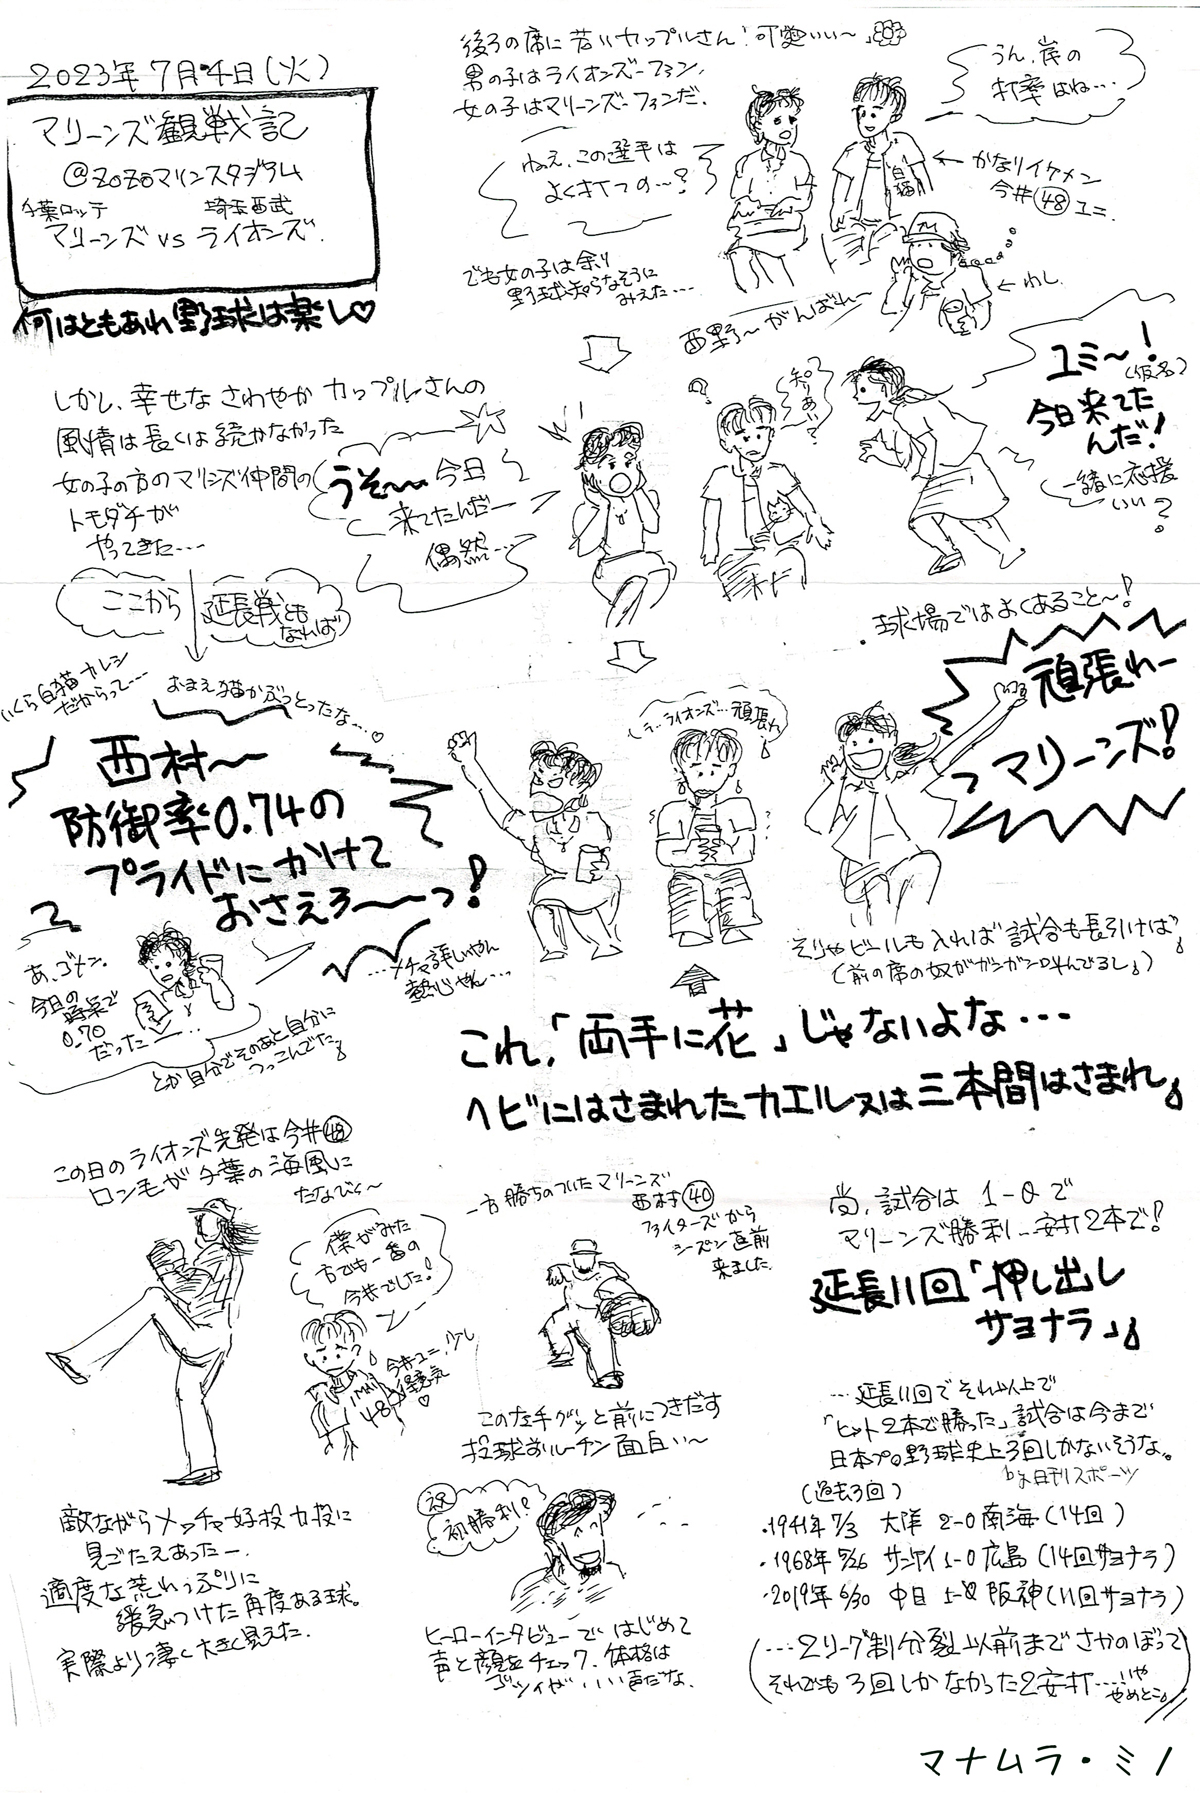 2023年7月4日(火)
マリーンズ観戦記
@ZOZOマリンスタジアム
千葉ロッテ 埼玉西武
マリーンズ vs ライオンズ
何はともあれ野球は楽し♡
後ろの席に若いカップルさん!可愛いい〜♪
男の子はライオンズ-ファン、
女の子はマリーンズ-ファンだ。
ねえ、この選手は
よく打つの…?
うん、岸の
打率はね…
白猫
←かなりイケメン
今井㊽ユニ.
でも女の子は余り
野球知らなそうに
みえた…
西野〜がんばれ〜
←わし
しかし、幸せなさわやかカップルさんの
風情は長くは続かなかった
女の子の方のマリーンズ仲間の
トモダチが
やってきた…
うそ〜〜今日
来てたんだー
偶然…
?
知りあい?
ユミ〜!
(仮名)
今日来てた
んだ!
一緒に応援
いい?
ここから
延長戦とも
なれば
球場ではよくあること〜!
いくら白猫カレシ
だからって…
おまえ猫かぶっとったな…♡
西村〜
防御率0.74の
プライドにかけて
おさえろ〜〜っ!
う…ライオンズ…頑張れ
頑張れー
っマリーンズ!
あ、ゴメン.
今日の
時点で
0.70
だった…
とか自分でそのあと自分に
つっこんでた
…メチャ詳しいやん
熱心やん…
そりゃビールも入れば試合も長引けば
(前の席の奴がガンガン叫んでるし)
これ、「両手に花」じゃないよな…
ヘビにはさまれたカエル又は三本間はさまれ
この日のライオンズ先発は今井㊽
ロン毛が千葉の海風に
たなびく〜
僕がみた
中でも一番の
今井でした!
IMAI
48
今井ユニ、少し
得意気
♡
敵ながらメッチャ好投力投に
見ごたえあったー.
適度な荒れっぷりに
緩急つけた角度ある球。
実際より凄く大きく見えた.
一方勝ちのついたマリーンズ
西村㊵
ファイターズから
シーズン直前
来ました.
この左手グッと前につきだす
投球前ルーチン面白い〜
祝
初勝利!
ヒーローインタビューではじめて
声と顔をチェック、体格は
ゴツイがいい声だな.
尚、試合は1-0で
マリーンズ勝利…安打2本で!
延長11回「押し出し
サヨナラ」
…延長11回でそれ以上で
「ヒット2本で勝った」試合は今まで
日本プロ野球史上3回しかないそうな。
by日刊スポーツ
(過去3回)
・1941年7/3 大洋 2-0 南海(14回)
・1968年5/26 サンケイ 1-0 広島(14回サヨナラ)
・2019年6/30 中日 1-0 阪神(11回サヨナラ)
(…2リーグ制分裂以前までさかのぼって
それでも3回しかなかった2安打……いや
やめとこ)
マナムラ・ミノ